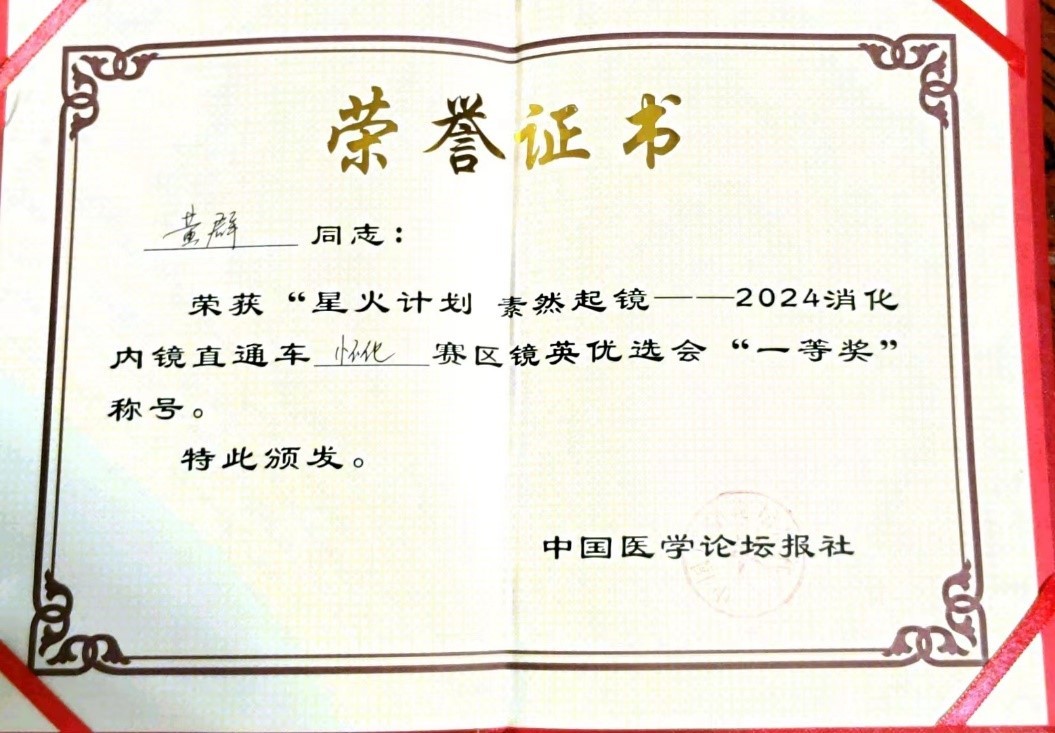 荣誉证书
黄群 同志：
荣获“星火计划 素然起镜——2024消化
内镜直通车怀化赛区镜英优选会“一等奖”
称号。
特此颁发。
中国医学论坛报社